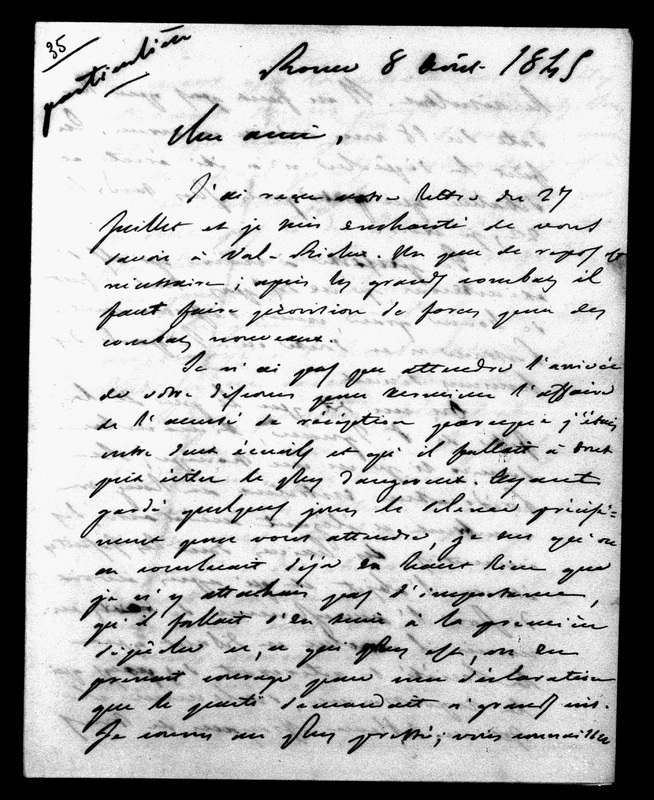 35
particulière
Rome 8 Août 1845
Cher ami,
J'ai reçu votre lettre du 27
Juillet et je suis enchanté de vous
savoir à Val-Richer. Un peu de repos est
nécessaire ; après les grands combats il
faut faire provision de forces pour des
combats nouveaux.
Je n'ai pas pu attendre l'arrivée
de votre réponse pour terminer l'affaire
de l'accusé de réception parceque j'étais
entre deux écueils et qu'il fallait à tout
prix éviter le plus dangereux. Ayant
gardé quelques jours le silence précisé-
ment pour vous attendre, je sus qu'on
en concluait déjà en haut lieu que
je n'y attachais pas d'importance,
qu'il fallait s'en tenir à la première
dépêche et, ce qui plus est, on en
prenait courage pour une déclaration
que le parti demandait à grands cris.
Je courus au plus pressé ; vous connaissez